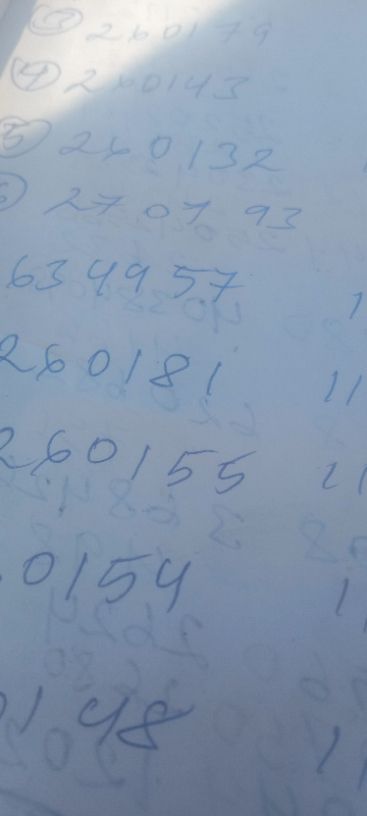 ③ 260179
④ 260143
⑤ 260132
⑥ 270793
634957
260181 11
260155 11
0154 1
0148 11